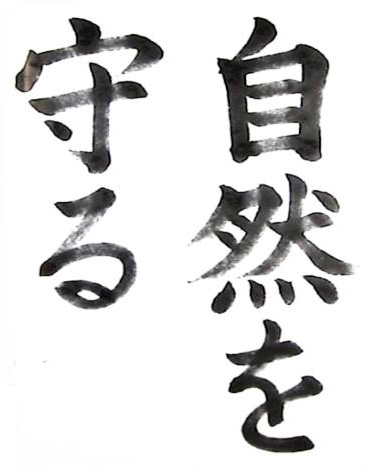 自然を
守る